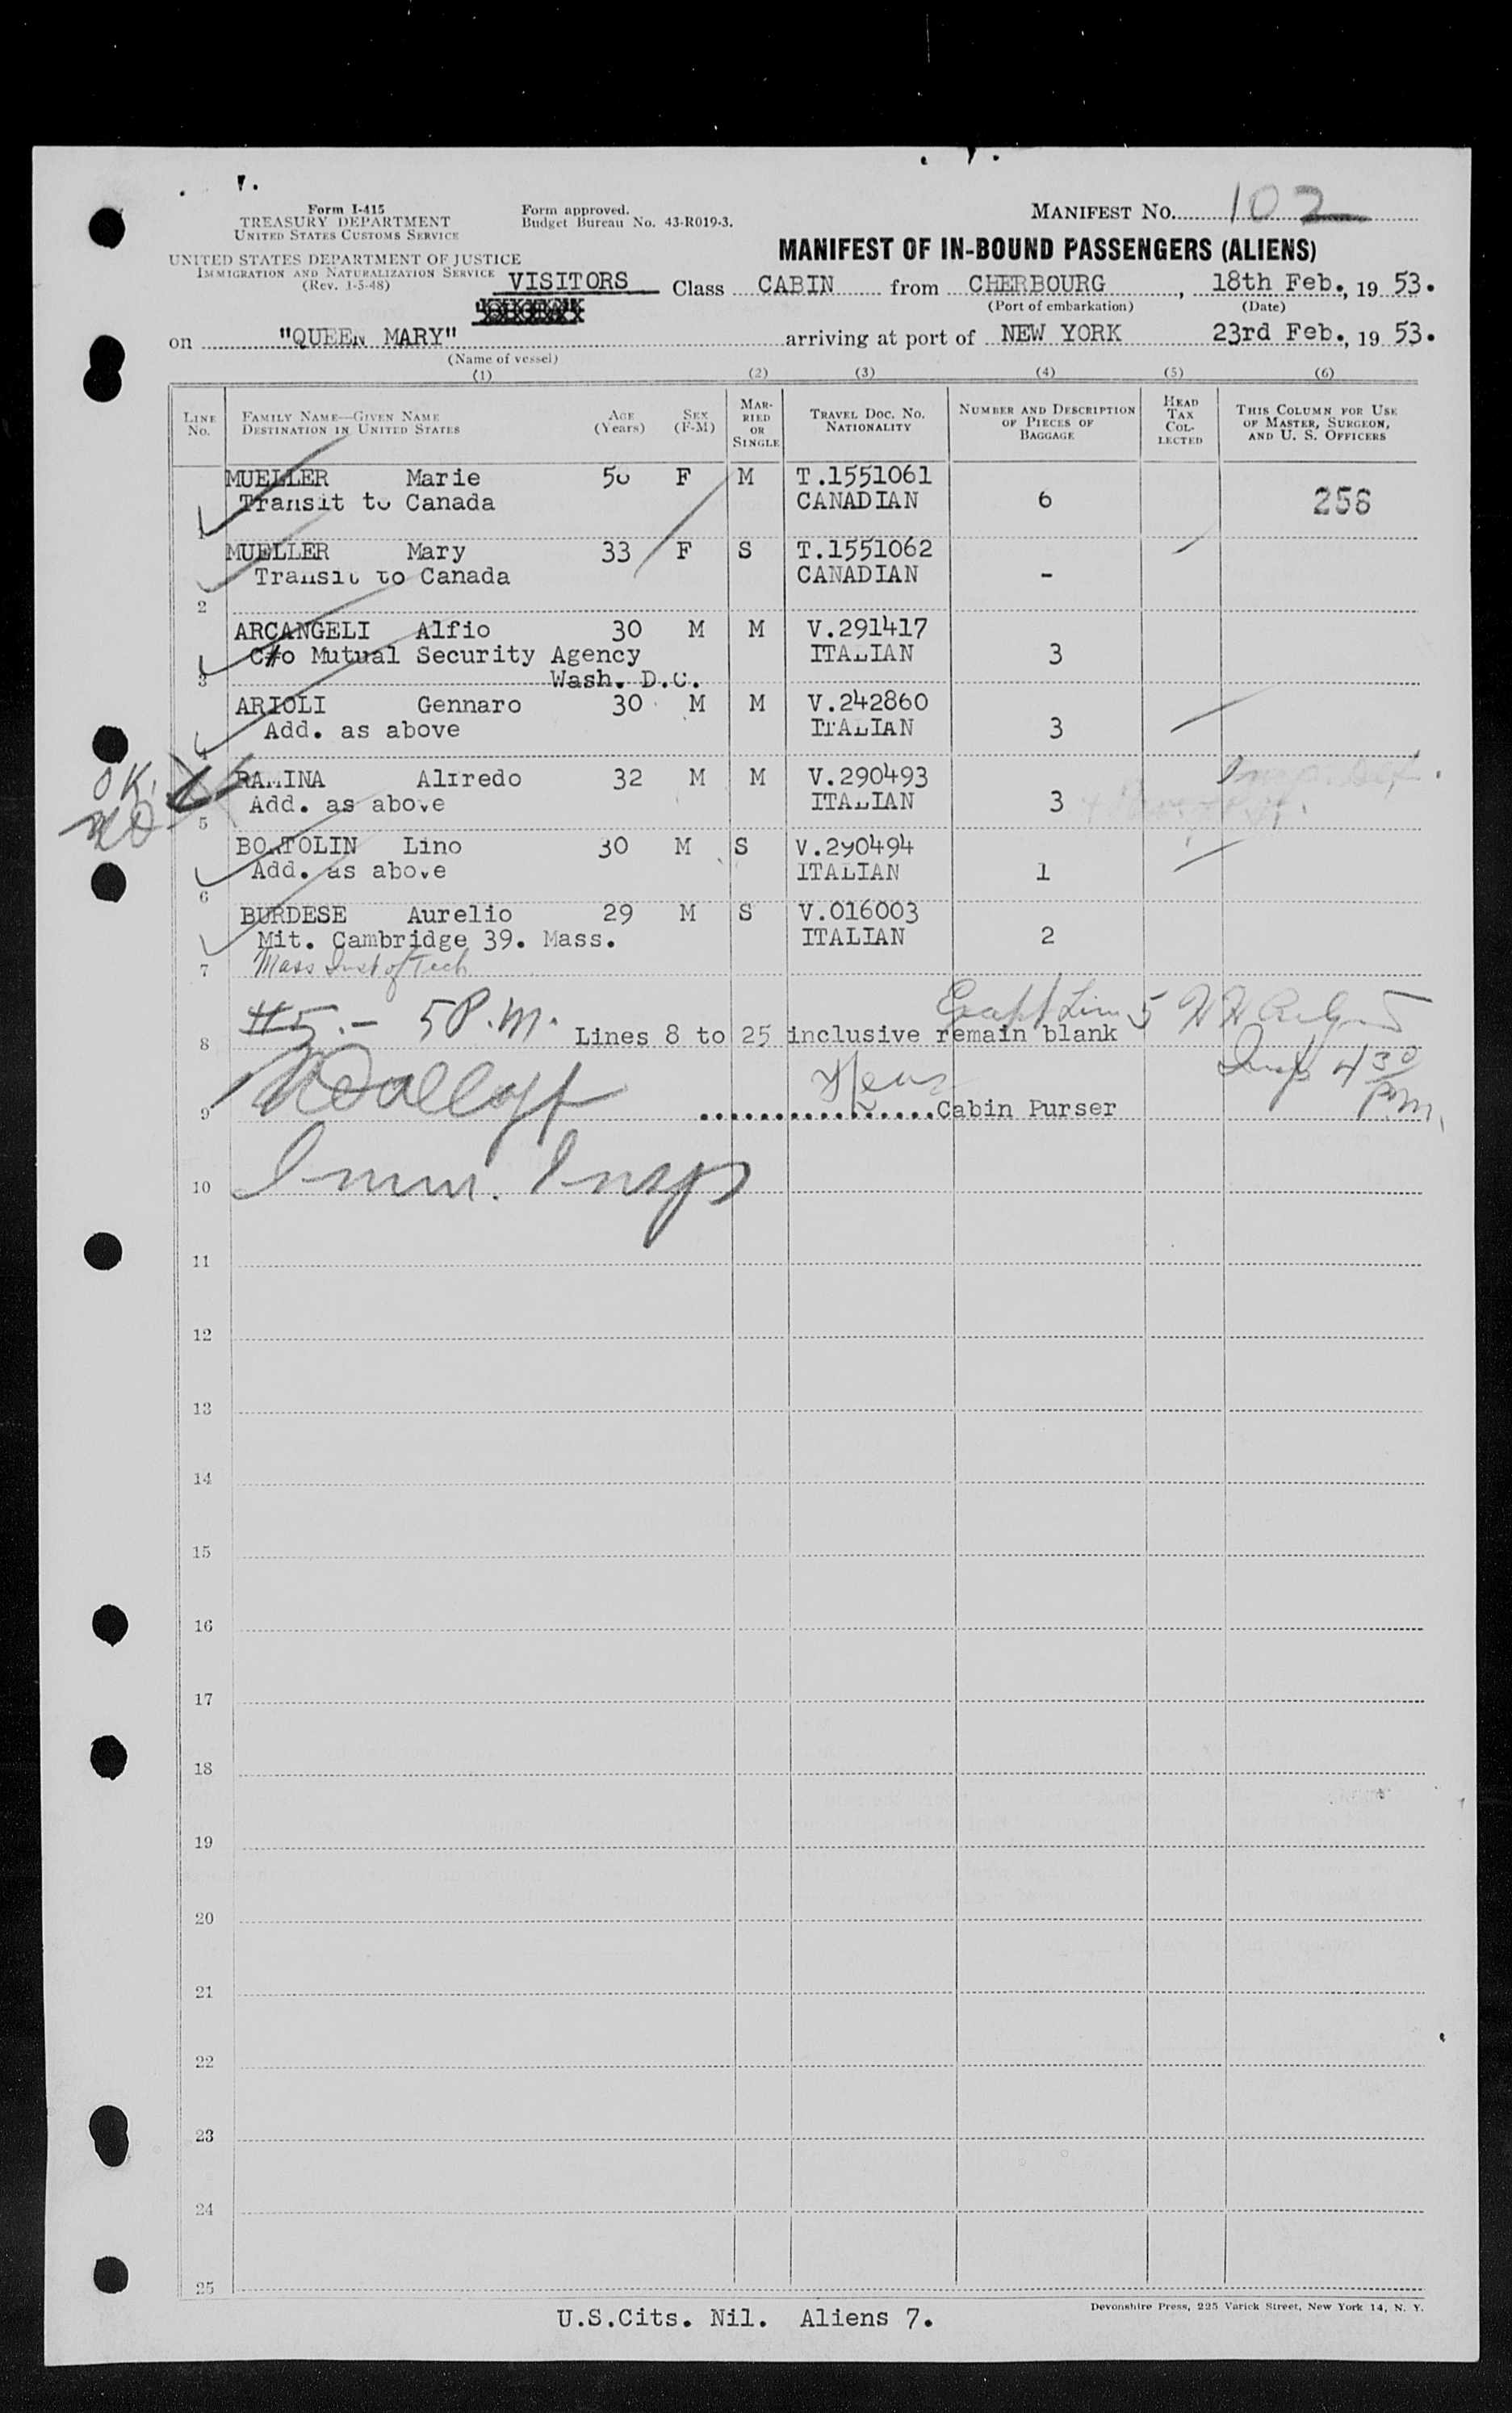 Form I-415
TREASURY DEPARTMENT
UNITED STATES CUSTOMS SERVICE
Form approved.
Budget Bureau No. 43-R019-3.
MANIFEST NO. 102
UNITED STATES DEPARTMENT OF JUSTICE
IMMIGRATION AND NATURALIZATION SERVICE
(Rev. 1-5-48)
MANIFEST OF IN-BOUND PASSENGERS (ALIENS)
VISITORS Class CABIN from CHERBOURG, 18th Feb., 19 53.
(Port of embarkation) (Date)
on "QUEEN MARY" arriving at port of NEW YORK 23rd Feb., 19 53.
(Name of vessel)
(1) (2) (3) (4) (5) (6)
LINE NO. FAMILY NAME—GIVEN NAME DESTINATION IN UNITED STATES AGE (Years) SEX (F-M) MARRIED OR SINGLE TRAVEL DOC. NO. NATIONALITY NUMBER AND DESCRIPTION OF PIECES OF BAGGAGE HEAD TAX COLLECTED THIS COLUMN FOR USE OF MASTER, SURGEON, AND U. S. OFFICERS
MUELLER Marie 50 F M T.1551061
1 Transit to Canada CANADIAN 6 256
MUELLER Mary 33 F S T.1551062
Transit to Canada CANADIAN -
2
ARCANGELI Alfio 30 M M V.291417
C/o Mutual Security Agency ITALIAN 3
3 Wash. D.C.
ARIOLI Gennaro 30 M M V.242860
4 Add. as above ITALIAN 3
OK. RAMINA Alfredo 32 M M V.290493
5 Add. as above ITALIAN 3
BORTOLIN Lino 30 M S V.290494
6 Add. as above ITALIAN 1
BURDESE Aurelio 29 M S V.016003
Mit. Cambridge 39. Mass. ITALIAN 2
7 Mass Inst of Tech
#5.- 5 P.M. Line 5
8 Lines 8 to 25 inclusive remain blank
Insp 4 30 P.M.
9 Cabin Purser
10 Imm. Insp
11
12
13
14
15
16
17
18
19
20
21
22
23
24
25
Devonshire Press, 225 Varick Street, New York 14, N. Y.
U.S.Cits. Nil. Aliens 7.